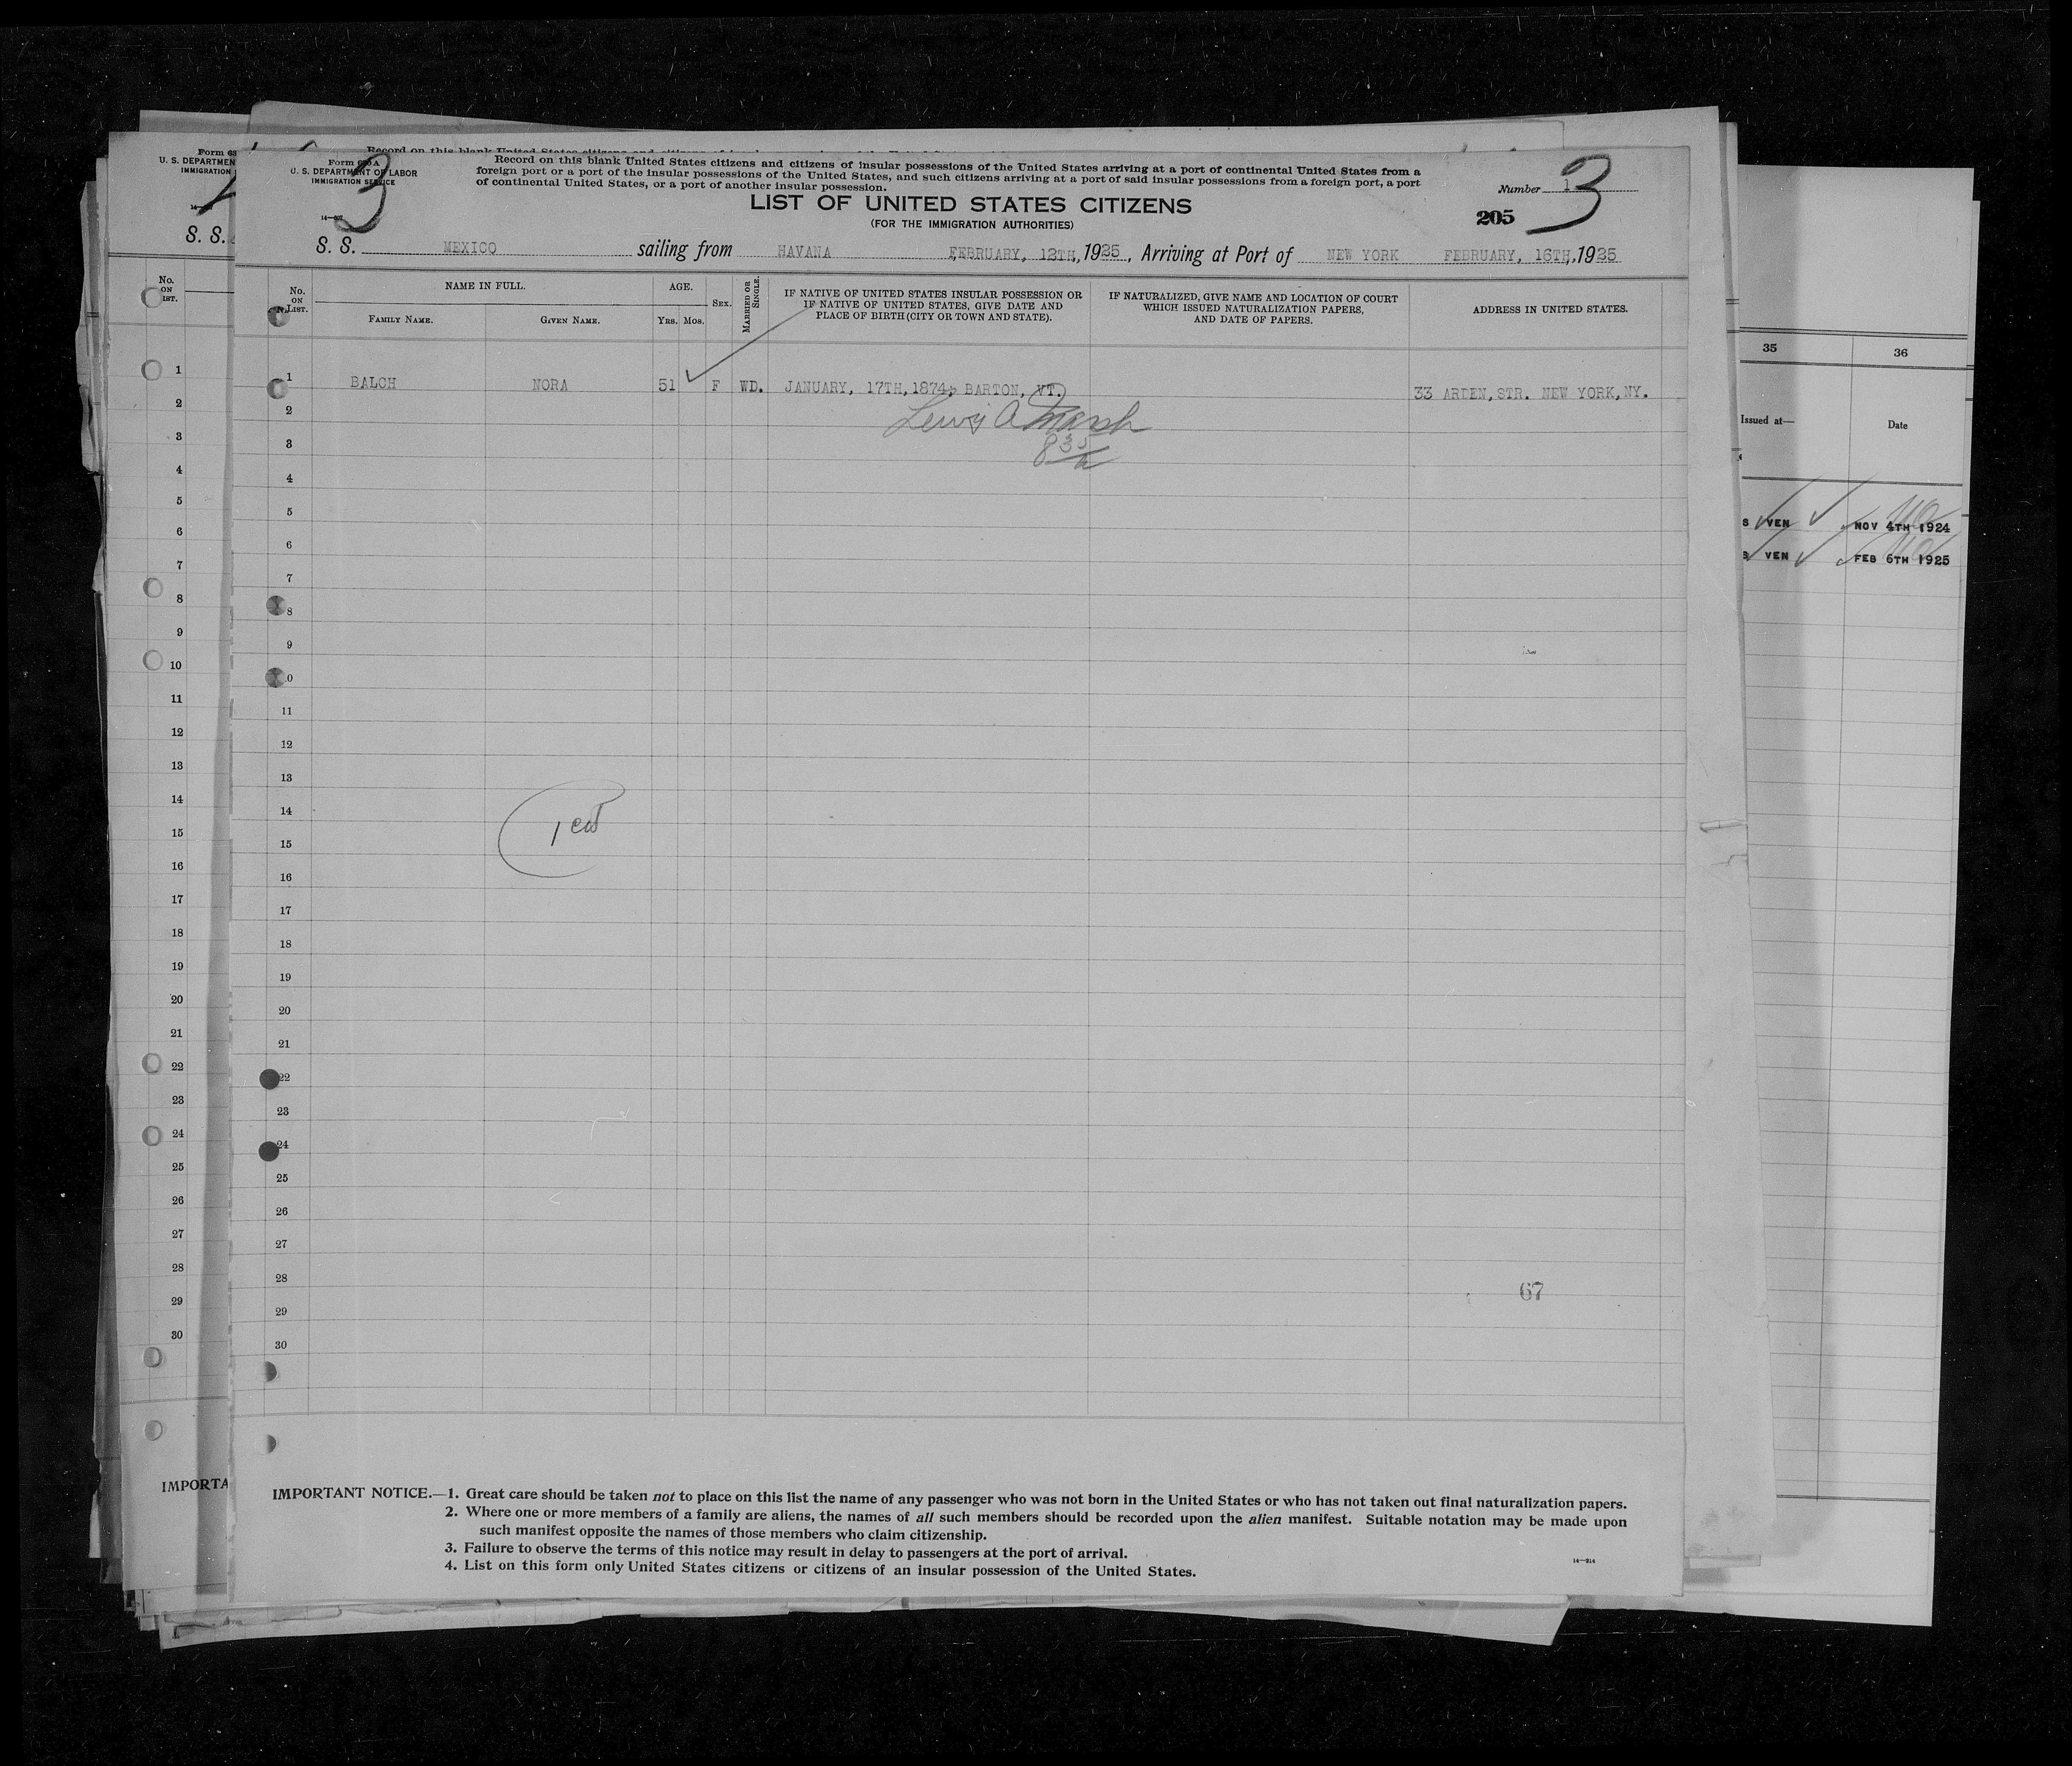 Form 630 A
U. S. DEPARTMENT OF LABOR
IMMIGRATION SERVICE
14—207
3
Record on this blank United States citizens and citizens of insular possessions of the United States arriving at a port of continental United States from a
foreign port or a port of the insular possessions of the United States, and such citizens arriving at a port of said insular possessions from a foreign port, a port
of continental United States, or a port of another insular possession.
Number 1
3
205
LIST OF UNITED STATES CITIZENS
(FOR THE IMMIGRATION AUTHORITIES)
S. S. MEXICO sailing from HAVANA FEBRUARY, 12TH, 1925, Arriving at Port of NEW YORK FEBRUARY, 16TH, 1925
No. ON LIST.
NAME IN FULL.
FAMILY NAME. GIVEN NAME.
AGE.
YRS. MOS.
SEX.
MARRIED OR SINGLE.
IF NATIVE OF UNITED STATES INSULAR POSSESSION OR
IF NATIVE OF UNITED STATES, GIVE DATE AND
PLACE OF BIRTH (CITY OR TOWN AND STATE).
IF NATURALIZED, GIVE NAME AND LOCATION OF COURT
WHICH ISSUED NATURALIZATION PAPERS,
AND DATE OF PAPERS.
ADDRESS IN UNITED STATES.
1 BALCH NORA 51 F WD. JANUARY, 17TH, 1874, BARTON, VT. 33 ARDEN, STR. NEW YORK, NY.
2 Lewis A Marsh
3 835
4
5
6
7
8
9
10
11
12
13
14 1 cit
15
16
17
18
19
20
21
22
23
24
25
26
27
28
67
29
30
IMPORTANT NOTICE.—1. Great care should be taken not to place on this list the name of any passenger who was not born in the United States or who has not taken out final naturalization papers.
2. Where one or more members of a family are aliens, the names of all such members should be recorded upon the alien manifest. Suitable notation may be made upon
such manifest opposite the names of those members who claim citizenship.
3. Failure to observe the terms of this notice may result in delay to passengers at the port of arrival.
4. List on this form only United States citizens or citizens of an insular possession of the United States.
14—214
Form 63
U. S. DEPARTMEN
IMMIGRATION
S. S.
No. ON LIST.
1
2
3
4
5
6
7
8
9
10
11
12
13
14
15
16
17
18
19
20
21
22
23
24
25
26
27
28
29
30
IMPORTA
35 36
Issued at— Date
S VEN NOV 4TH 1924
S VEN FEB 6TH 1925